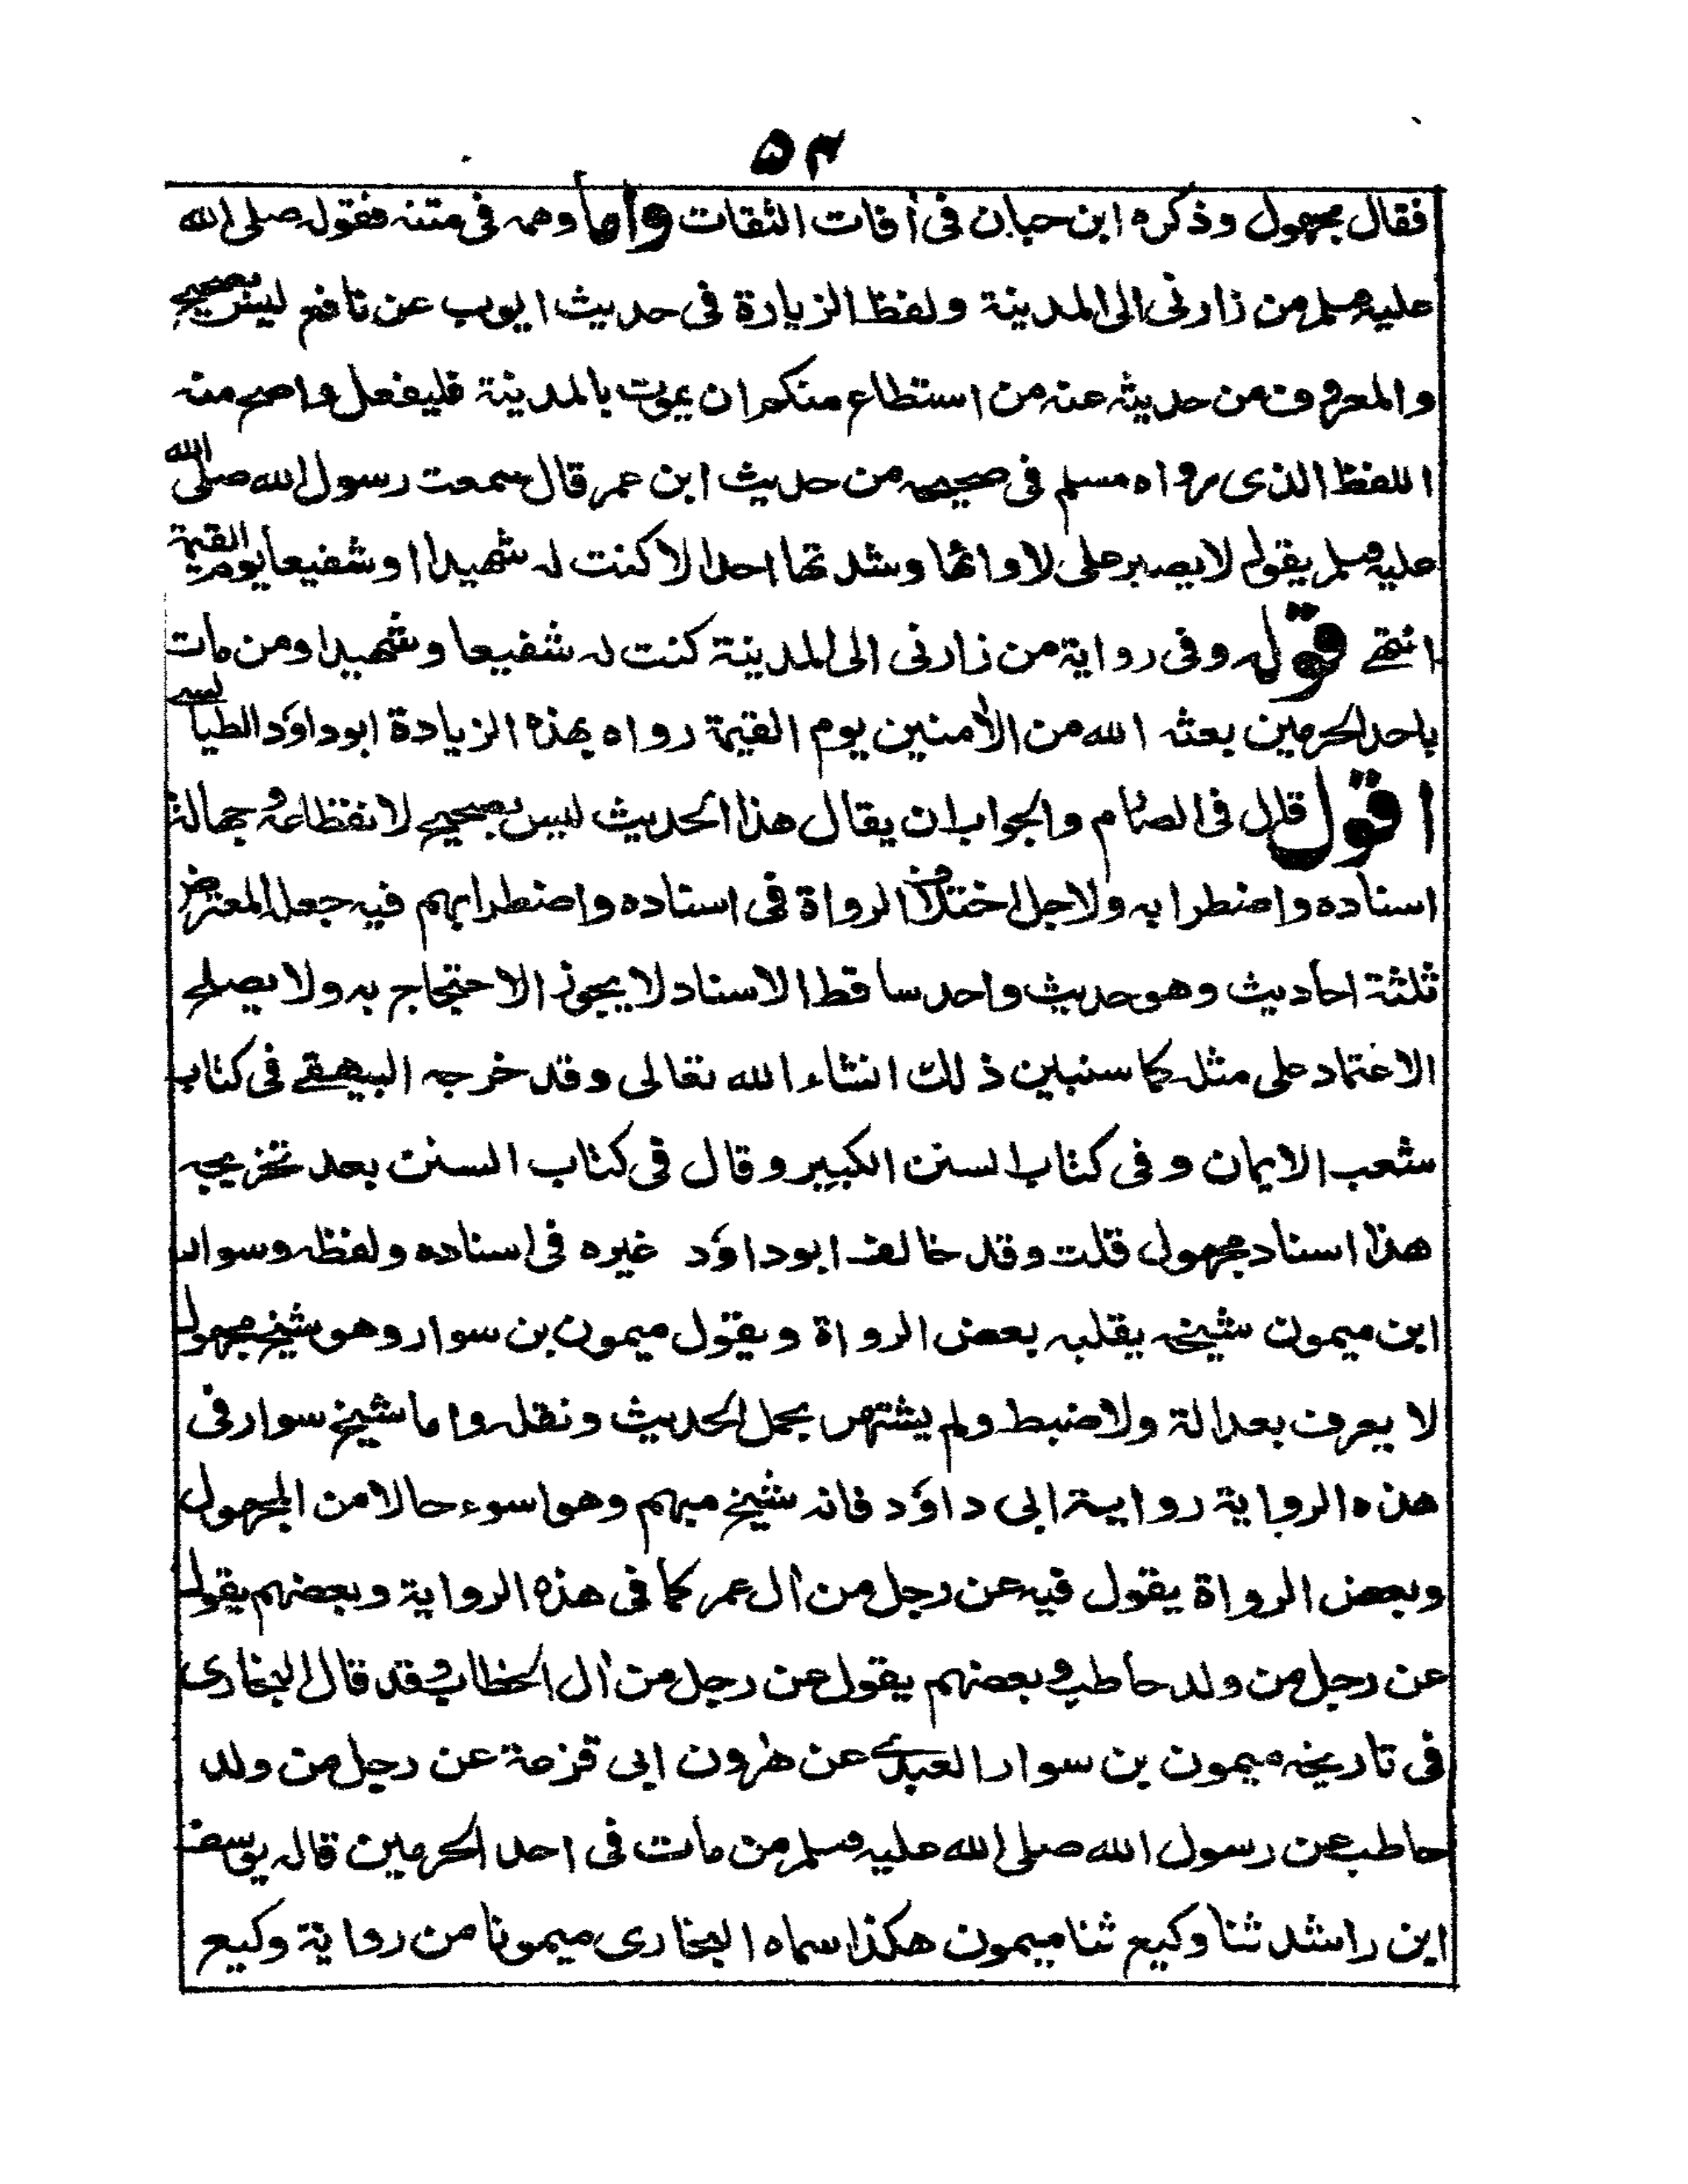 ۵۴
فقال مجهول وذكره ابن حبان فى أفات الثقات واما وهمه فى متنه فقوله صلى الله
عليه وسلم من زارنى الى المدينة ولفظ الزيارة فى حديث ايوب عن نافع ليس بصحيح
والمعروف من حديثه عنه من استطاع منكم ان يموت بالمدينة فليفعل واصح منه
اللفظ الذى رواه مسلم فى صحيحه من حديث ابن عمر قال سمعت رسول الله صلى الله
عليه وسلم يقول لا يصبر على لاوائها وشدتها احد الا كنت له شهيدا او شفيعا يوم القيمة
انتهے قوله وفى رواية من زارنى الى المدينة كنت له شفيعا وشهيدا ومن مات
باحد الحرمين بعثه الله من الأمنين يوم القيمة رواه بهذه الزيادة ابو داؤد الطيالسے
اقول قال فى الصارم والجواب ان يقال هذا الحديث ليس بصحيح لانقطاعه وجهالة
اسناده واضطرابه ولاجل اختلاف الرواة فى اسناده واضطرابهم فيه جعله المعترض
ثلثة احاديث وهو حديث واحد ساقط الاسناد لا يجوز الاحتجاج به ولا يصلح
الاعتماد على مثله كما سنبين ذلك انشاء الله تعالى وقد خرجه البيهقے فى كتاب
شعب الايمان وفى كتاب السنن الكبير وقال فى كتاب السنن بعد تخريجه
هذا اسناد مجهول قلت وقد خالف ابو داؤد غيره فى اسناده ولفظه وسوار
ابن ميمون شيخه يقلبه بعض الرواة ويقول ميمون بن سوار وهو شيخ مجهول
لا يعرف بعدالة ولا ضبط ولم يشتهر بحمل الحديث ونقله واما شيخ سوار فى
هذه الرواية رواية ابى داؤد فانه شيخ مبهم وهو اسوء حالا من المجهول
وبعض الرواة يقول فيه عن رجل من أل عمر كما فى هذه الرواية وبعضهم يقول
عن رجل من ولد حاطب وبعضهم يقول عن رجل من أل الخطاب وقد قال البخارى
فى تاريخه ميمون بن سوار العبدے عن هرون ابى قزعة عن رجل من ولد
حاطب عن رسول الله صلى الله عليه وسلم من مات فى احد الحرمين قاله يوسف
ابن راشد ثنا وكيع ثنا ميمون هكذا سماه البخارى ميمونا من رواية وكيع